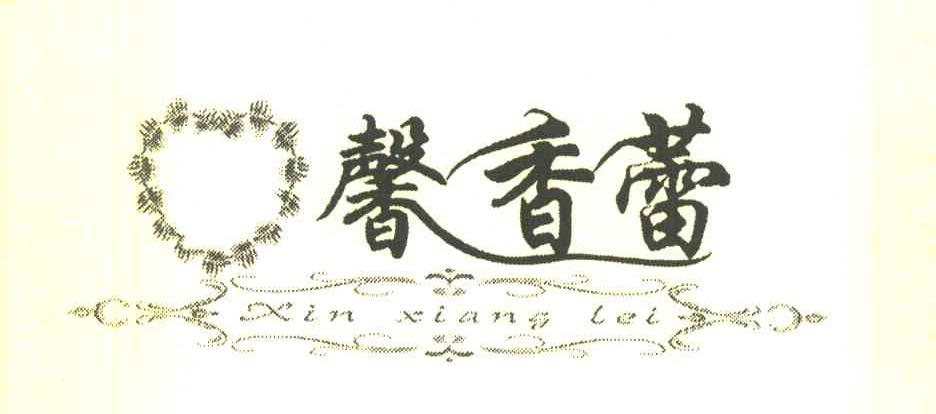 馨香蕾
Xin xiang lei